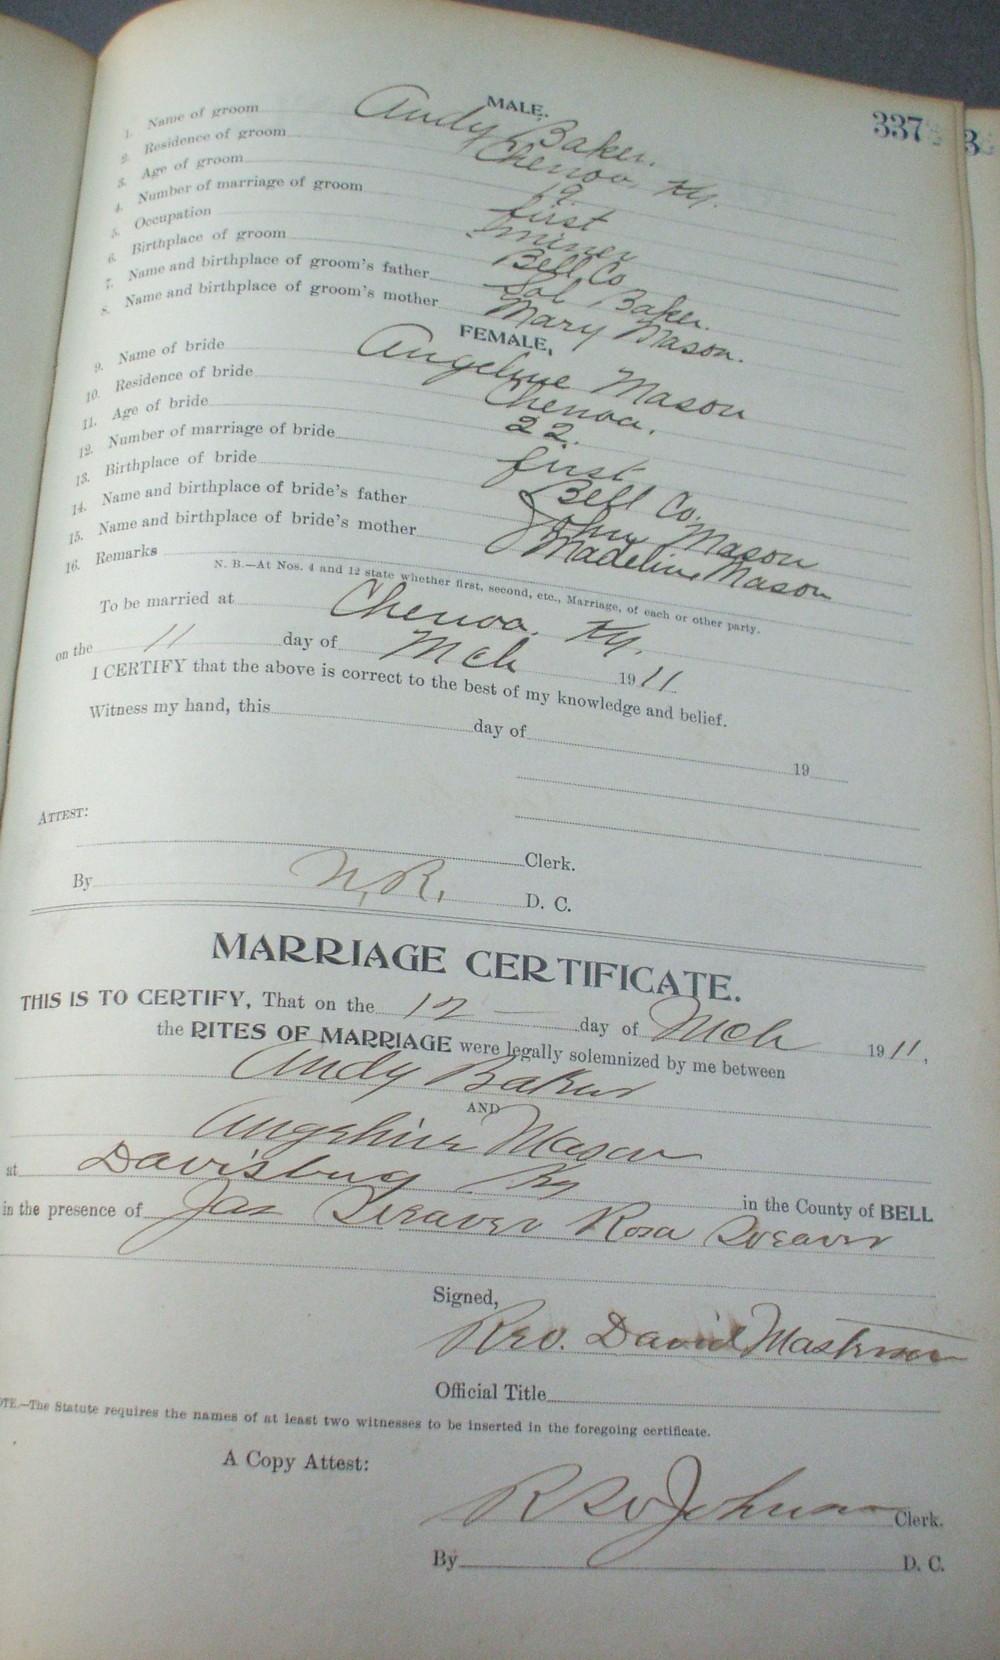 337
MALE.
1. Name of groom Andy Baker.
2. Residence of groom Chenoa, Ky.
3. Age of groom 19
4. Number of marriage of groom first
5. Occupation miner
6. Birthplace of groom Bell Co
7. Name and birthplace of groom's father Sol Baker.
8. Name and birthplace of groom's mother Mary Mason.
FEMALE,
9. Name of bride Angeline Mason
10. Residence of bride Chenoa.
11. Age of bride 22.
12. Number of marriage of bride first
13. Birthplace of bride Bell Co.
14. Name and birthplace of bride's father John Mason
15. Name and birthplace of bride's mother Madeline Mason
16. Remarks
N. B.—At Nos. 4 and 12 state whether first, second, etc., Marriage, of each or other party.
To be married at Chenoa. Ky.
on the 11 day of Mch 1911
I CERTIFY that the above is correct to the best of my knowledge and belief.
Witness my hand, this day of 19
ATTEST:
Clerk.
By N. R. D. C.
MARRIAGE CERTIFICATE.
THIS IS TO CERTIFY, That on the 12 — day of Mch 1911,
the RITES OF MARRIAGE were legally solemnized by me between
Andy Baker
AND
Angeline Mason
at Davisburg Ky in the County of BELL
in the presence of Jas Weaver Rosa Weaver
Signed,
Rev. David
Official Title
NOTE.—The Statute requires the names of at least two witnesses to be inserted in the foregoing certificate.
A Copy Attest:
Johnson Clerk.
By D. C.